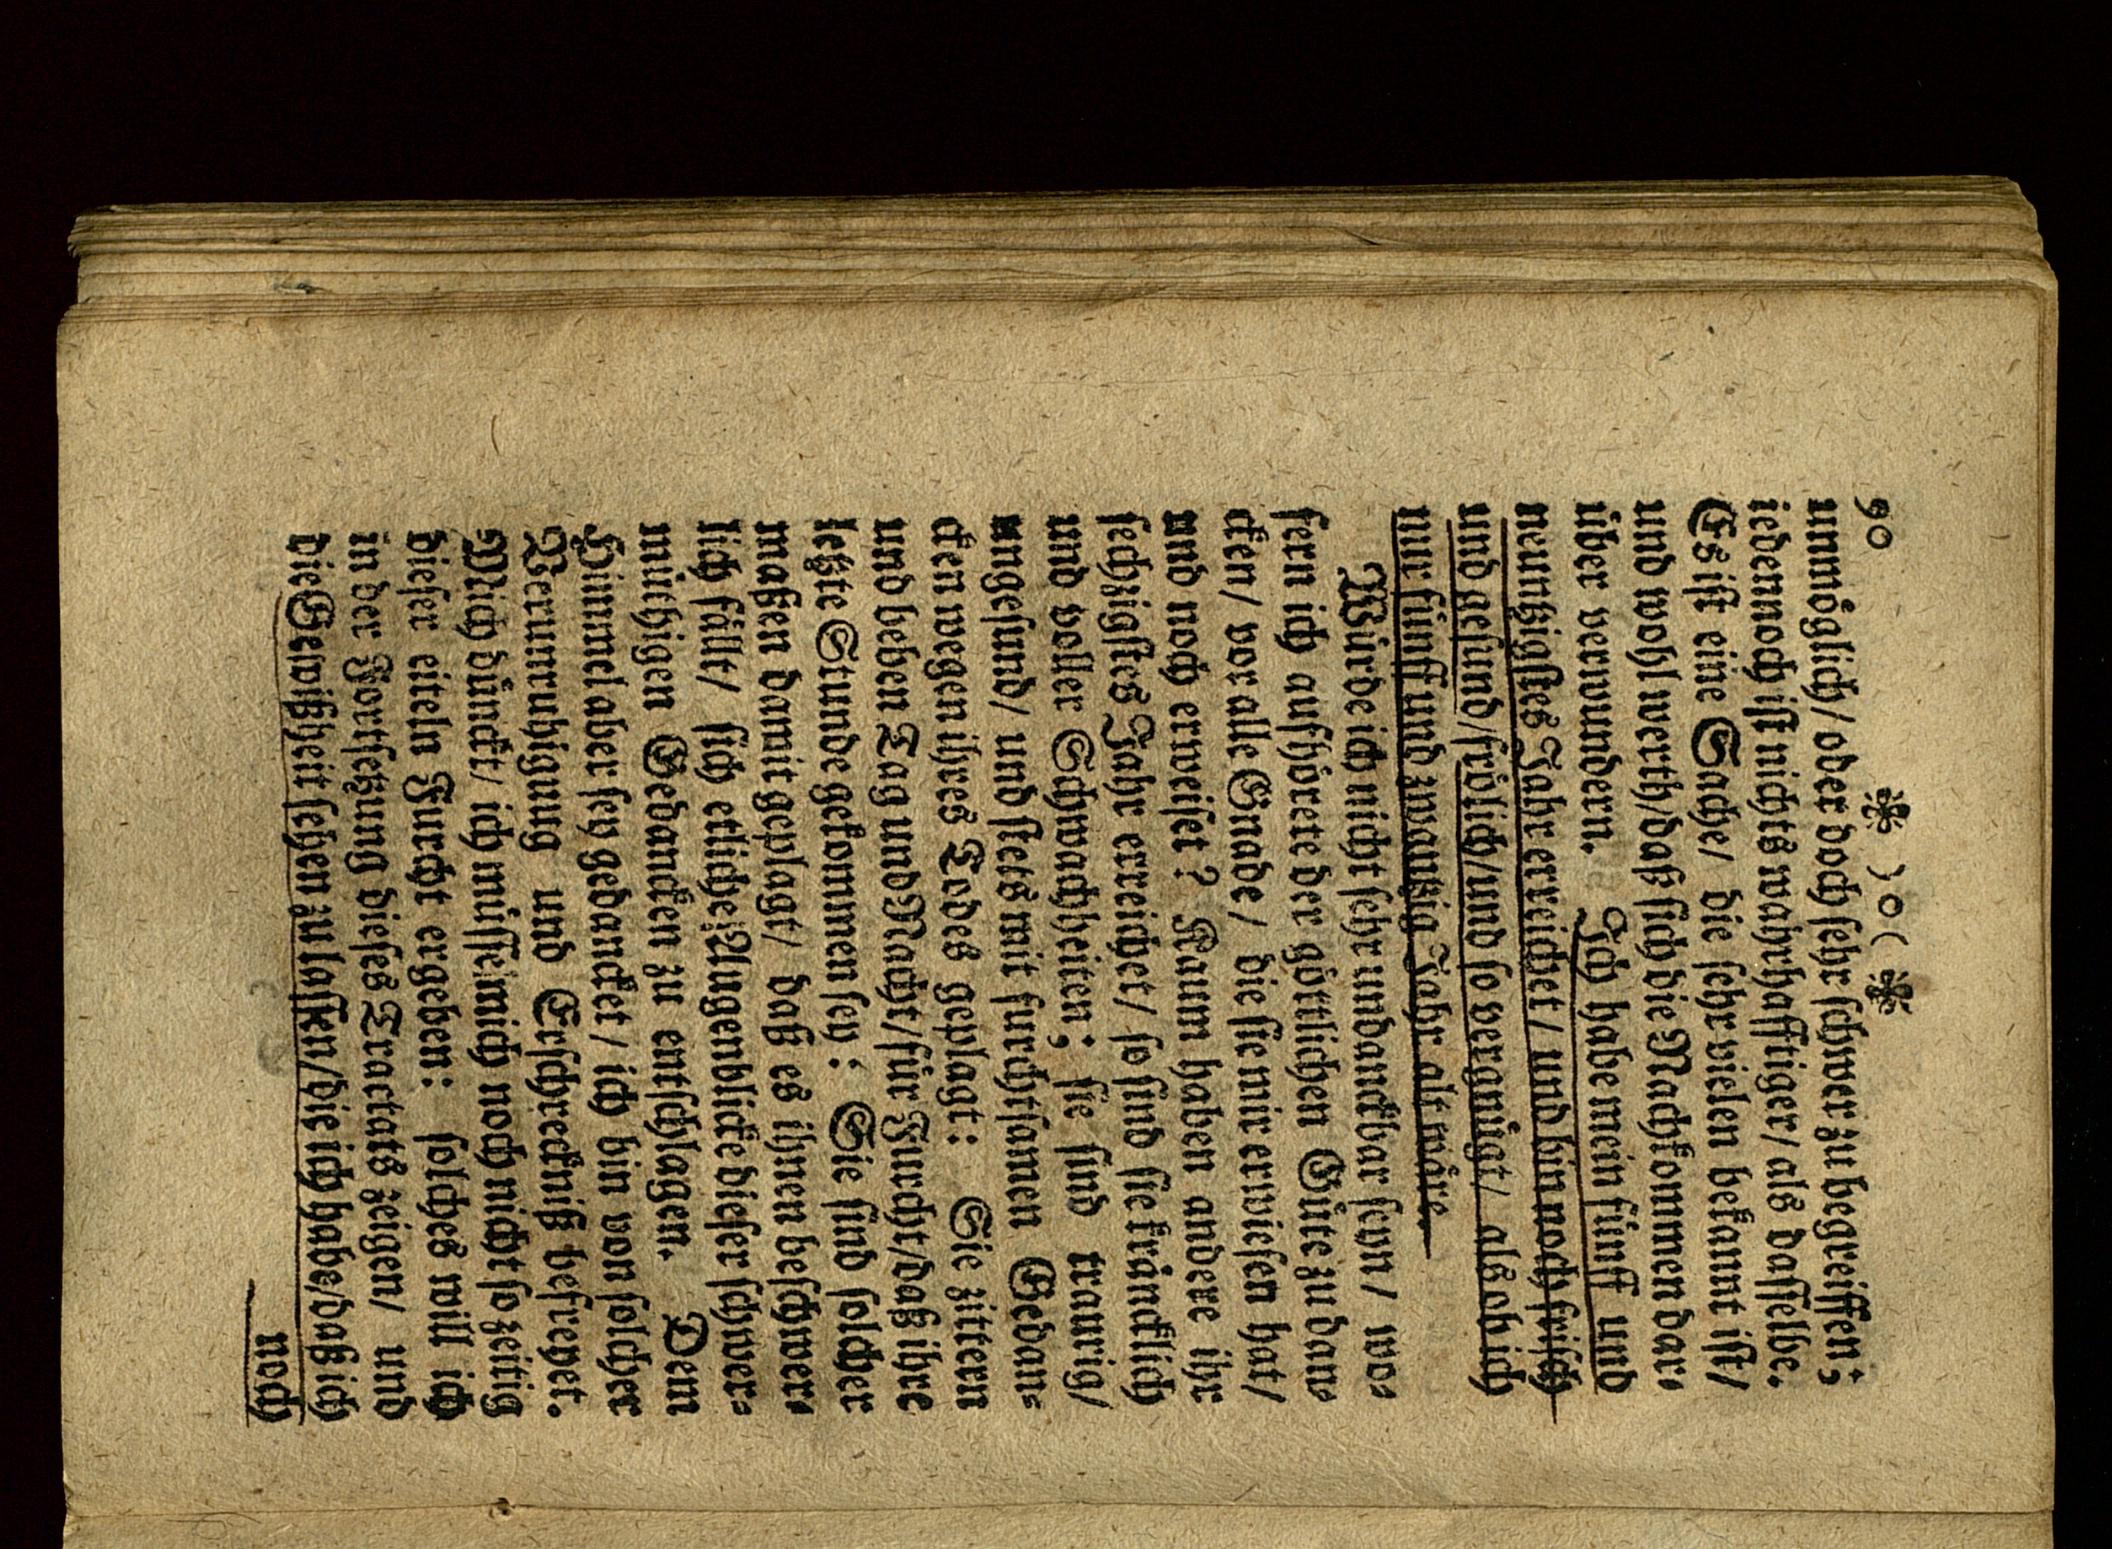 90 ❀ ) o ( ❀
unmöglich / oder doch sehr schwer zu begreiffen;
iedennoch ist nichts warhafftiger / als dasselbe.
Es ist eine Sache / die sehr vielen bekannt ist /
und wohl werth / daß sich die Nachkommen dar-
über verwundern. Ich habe mein fünff und
neuntzigstes Jahr erreichet / und bin noch frisch
und gesund / frölich / und so vergnügt / als ob ich
nur fünff und zwantzig Jahr alt wäre.
Würde ich nicht sehr undanckbar seyn / wo-
fern ich aufhörete der göttlichen Güte zu dan-
cken / vor alle Gnade / die sie mir erwiesen hat /
und noch erweiset? Kaum haben andere ihr
sechzigstes Jahr erreichet / so sind sie kräncklich
und voller Schwachheiten; sie sind traurig /
ungesund / und stets mit furchtsamen Gedan-
cken wegen ihres Todes geplagt: Sie zittern
und beben Tag und Nacht / für Furcht / daß ihre
letzte Stunde gekommen sey: Sie sind solcher
maßen damit geplagt / daß es ihnen beschwer-
lich fällt / sich etliche Augenblicke dieser schwer-
müthigen Gedancken zu entschlagen. Dem
Himmel aber sey gedancket / ich bin von solcher
Verunruhigung und Erschreckniß befreyet.
Mich dünckt / ich müsse mich noch nicht so zeitig
dieser eiteln Furcht ergeben: solches will ich
in der Fortsetzung dieses Tractats zeigen / und
die Gewißheit sehen zu lassen / die ich habe / daß ich
noch